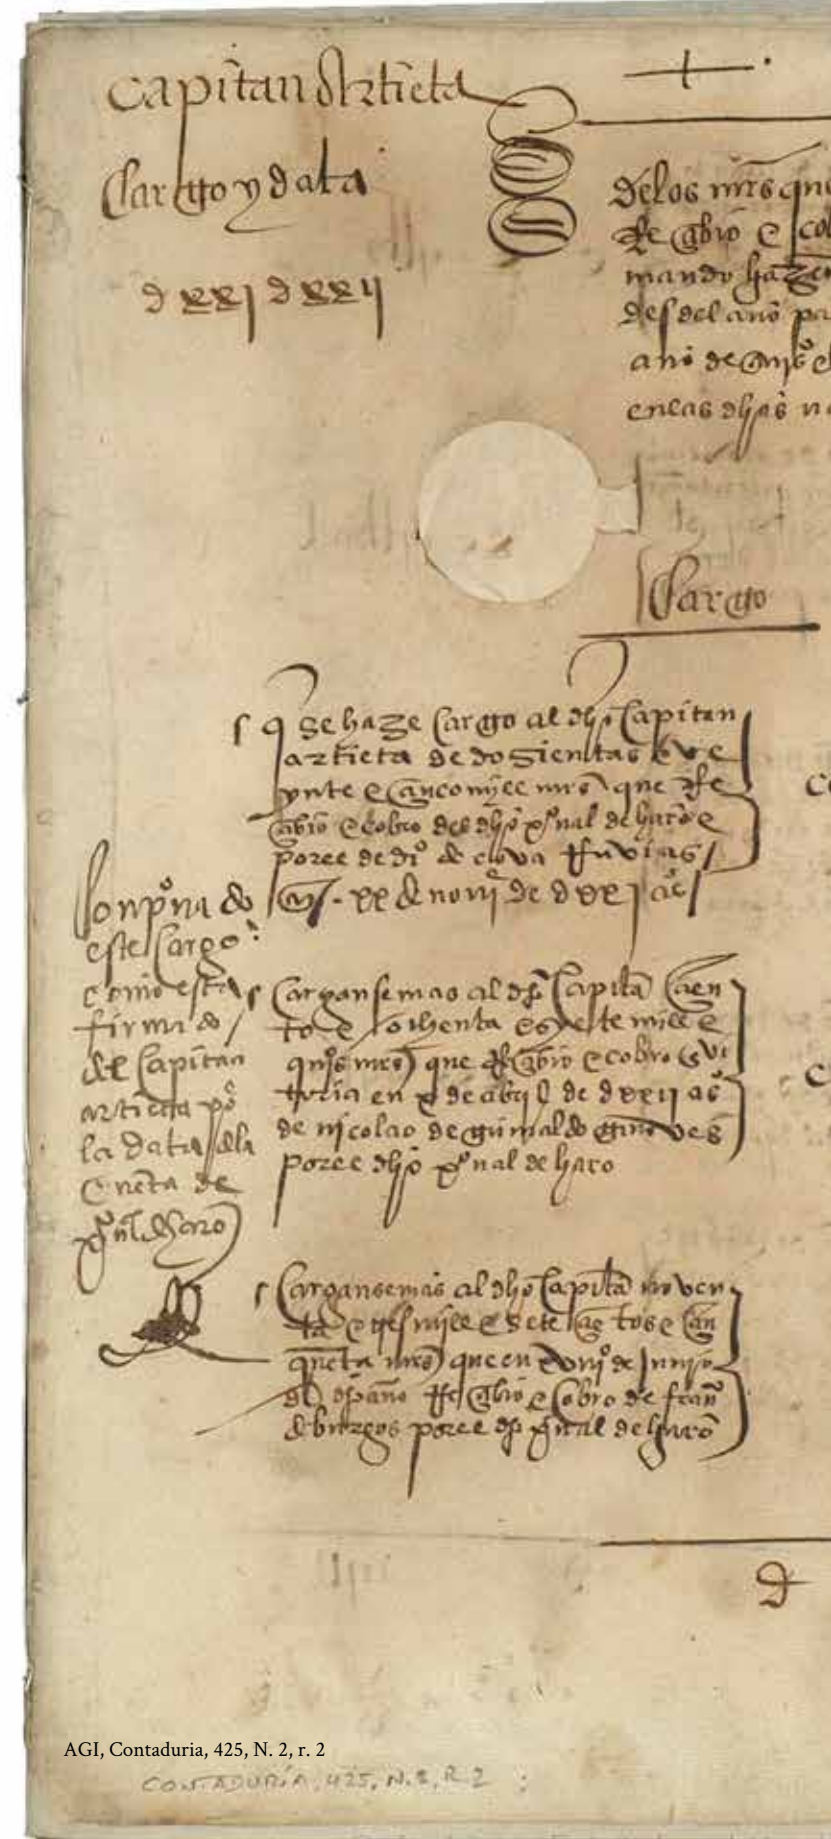 Capitan Artieta
Cargo y data
dxxj dxxij
+
de los mrs que
Recibio e cob
mando hazer
desdel año pa
año de
en las dhas n
Cargo
q se haze cargo al dho capitan
artieta de dozientas e ve
ynte e cinco mill mrs que Re
cibio e cobro del dho xpoual de haro e
por el de di° de
xx de nouie de dxxj as
Conpona do
este cargo
como esta
firmado
del capitan
artieta por
la data dela
cuenta de
xpoual de haro
Cargansemas al dho capitan cien
to e ochenta e syete mill e
quis mrs que Recibio e cobro en vi
toria en x de abril de dxxij as
de nicolao de grimaldo ginoves
por el dho xpoual de haro
Cargansemas al dho capitan noven
ta e tres mill e sete cientos e cin
quenta mrs que en xviij de junio
del dho año Recibio e cobro de fran
de burgos por el dho xpoual de haro
d
AGI, Contaduria, 425, N. 2, r. 2
CONTADURÍA, 425, N. 2, R. 2